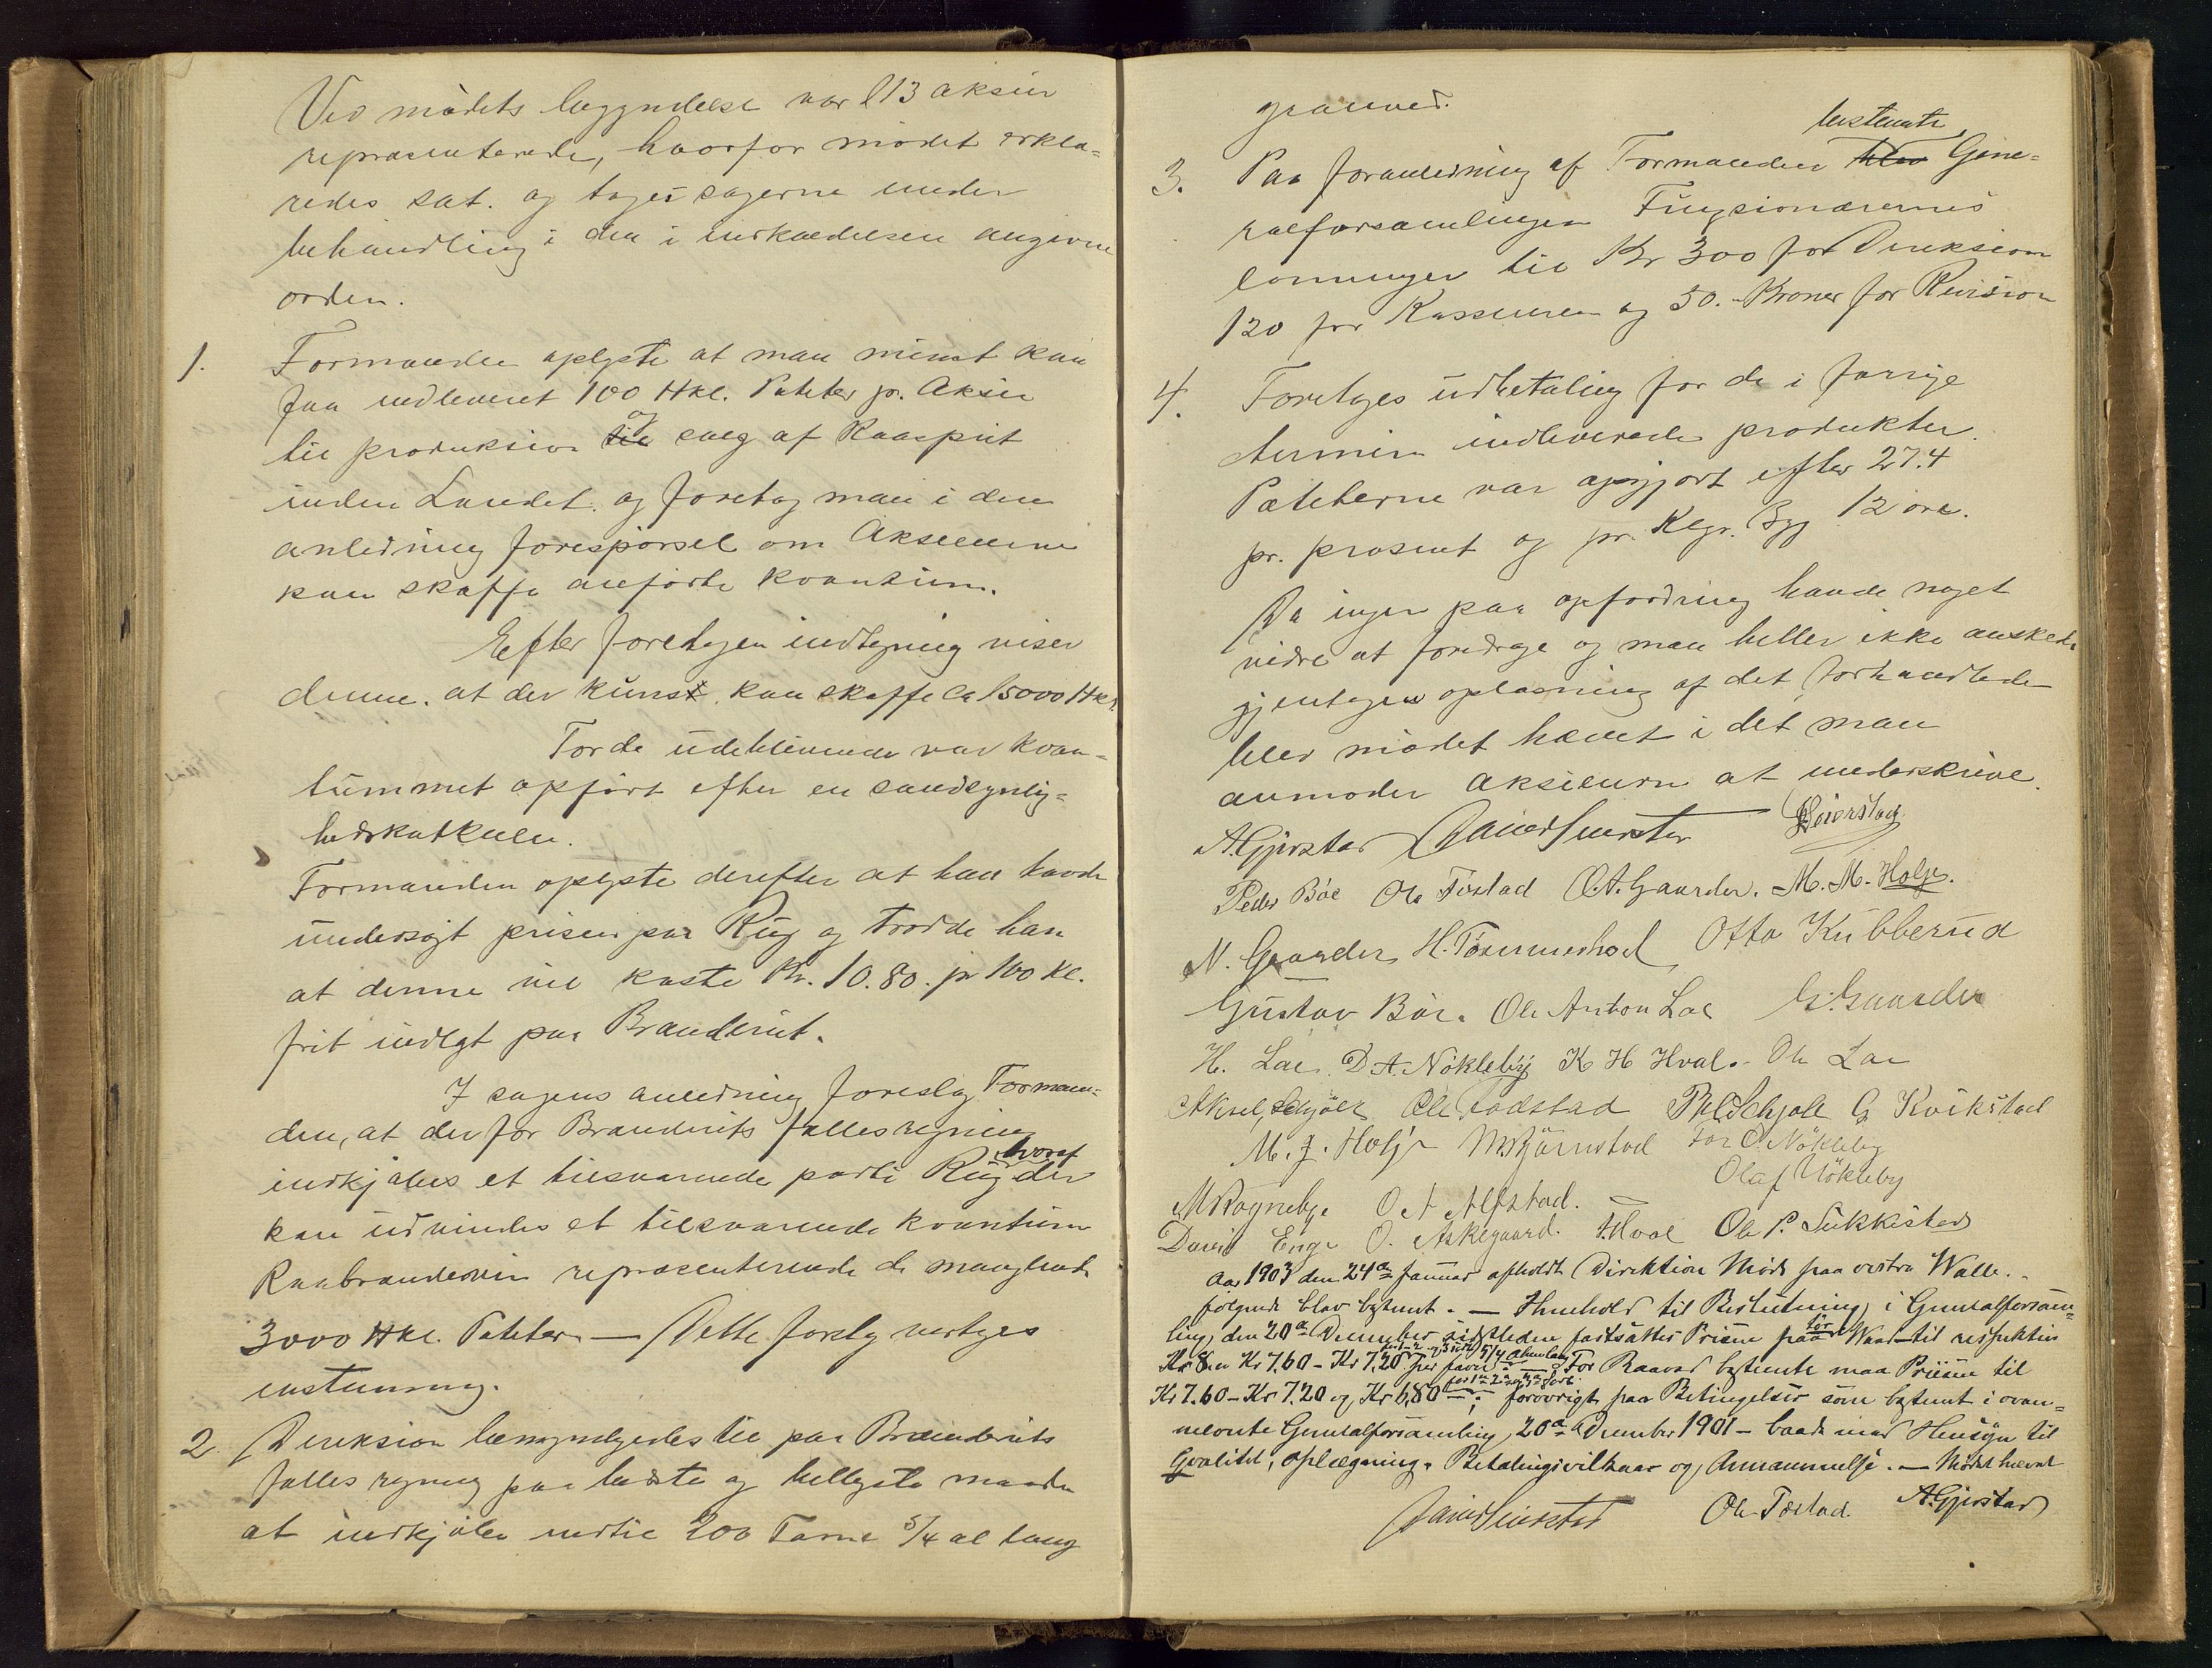 Ved mødets begyndelse var 113 aksier
repræsenterede, hvorfor mødet erklæ=
redes sat. og toges sagerne under
behandling i den i indkaldelsen angivne
orden.
1. Formanden oplyste at man minst kan
faa indleveret 100 Hkl. Poteter pr. Aksie
til produksion til og salg af Raaspirit
inden Landet. og foretog man i den
anledning forespørsel om Aksieeierne
kan skaffe anførte kvantum.
Efter foretagen indtegning viser
denne. at der kuns kan skaffe ca 15000 Hkl.
For de udeblivende var kvan=
tummet opført efter en sandsynlig=
hedskalkule.
Formanden oplyste derefter at han havde
undersøgt prisen paa Rug og trodde han
at denne vil koste Kr. 10.80. pr 100 Kl.
frit indlagt paa Brænderiet.
I sagens anledning foreslog Forman=
den, at der for Brænderiets fælles regning
indkjøbes et tilsvarende parti Rug hvoraf der
kan udvindes et tilsvarende kvantum
Raabrændevin repræsenterende de manglende
3000 Hkl. Poteter — Dette forslag vedtoges
enstemmig.
2. Direksion bemyndigedes til paa Brænderiets
fælles regning paa bedste og billigste maade
at indkjøbe indtil 200 Favne 5/4 al lang
granved.
3. Paa foranledning af Formanden blev bestemte Gene=
ralforsamlingen Fungsionærernes
lønninger til Kr 300 for Direksion
120 for Kassereren og 50.- Kroner for Revision
4. Foretoges udbetaling for de i forrige
termin indleverede produkter.
Poteterne var opgjort efter 27.4
pr. prosent og pr. Klgr. Byg 12 øre.
Da ingen paa opfordring havde noget
vidre at foredrage og man heller ikke ønskede
gjentagen oplæsning af det forhandlede
blev mødet hævet i det man
anmoder aksieeierne at underskrive.
A. Gjerstad David Seierstad Seierstad
Peder Bøe Ole Tøstad O. A. Gaarder. M. M. Holje.
N. Gaarder H. Tømmerhol Otto Kubberud
Gustav Bøe. Ole Anton Loe G. Gaarder
H. Loe. D. A. Nøkleby K H Hval. Ole Loe
Aksel Schjøll Ole Fodstad P. Schjøll G Kvikstad
M. J. Holje M. Bjørnstad For O. Nøkleby
Olaf Nökleby
M Rognebye O A Alfstad.
David Enge O. Askegaard. Hval Ole P. Sukkestad
Aar 1903 den 24de Januar afholdt Direktion Møde paa vestre Walle.
følgende blev bestemt. — I henhold til Beslutning i Generalforsam=
ling den 20de December sidstleden fastsættes Prisen paa tør Ved til respektive
Kr 8.00 Kr 7.60 - Kr 7.20 per favn 5/4 Alen lang — For Raaved bestemte maa Prisen til
Kr 7.60 - Kr 7.20 og Kr 6.80 for 1ste 2den og 3die Sort — ; forøvrigt paa Betingelser som bestemt i oven=
nævnte Generalforsamling 20de December 1901 - baade med Hensyn til
Qvalitet, oplægning, Betalingsvilkaar og Anmammelse. — Mødet hævet
David Seierstad Ole Tøstad. A. Gjerstad